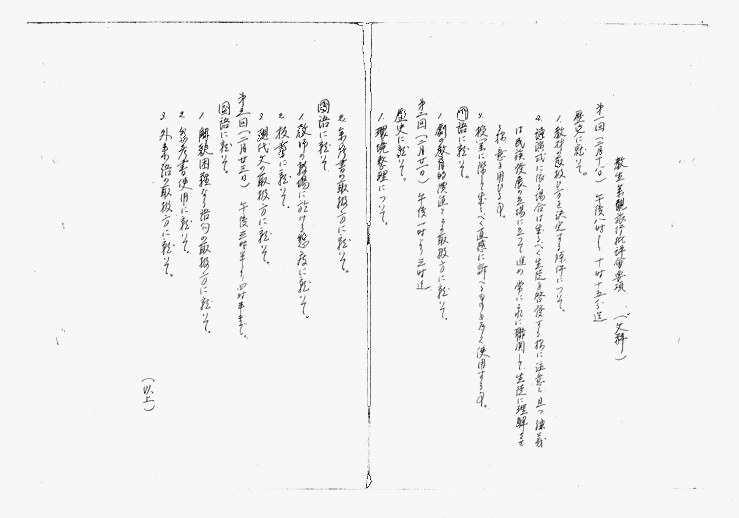 教生参観旅行批評會要項 (文科)
第一回(二月十八日) 午後八時より十時十五分迄
歴史に就いて。
1. 教材の取扱ひ方を決定する條件について。
2. 講演式に依る場合は生徒を啓發する様に注意し且つ講義
は民族發展の立場に立つて進め常に之に聯関して生徒に理解させ
る様に意を用ひる事。
3. 授業に際して直感に訴へるものを多く使用する事。
國語に就いて。
1. 劇の教育的演進とその取扱方に就いて。
第二回(二月廿一日) 午後一時より三時迄
歴史に就いて。
1. 環境整理について。
2. 参考書の取扱方に就いて。
國語に就いて
1. 教師の教場に於ける態度に就いて。
2. 板書に就いて。
3. 現代文の取扱方に就いて。
第三回(二月廿三日) 午後三時半より四時半まで。
國語に就いて。
1. 解釈困難なる語句の取扱方に就いて。
2. 参考書使用に就いて。
3. 外来語の取扱方に就いて。
(以上)